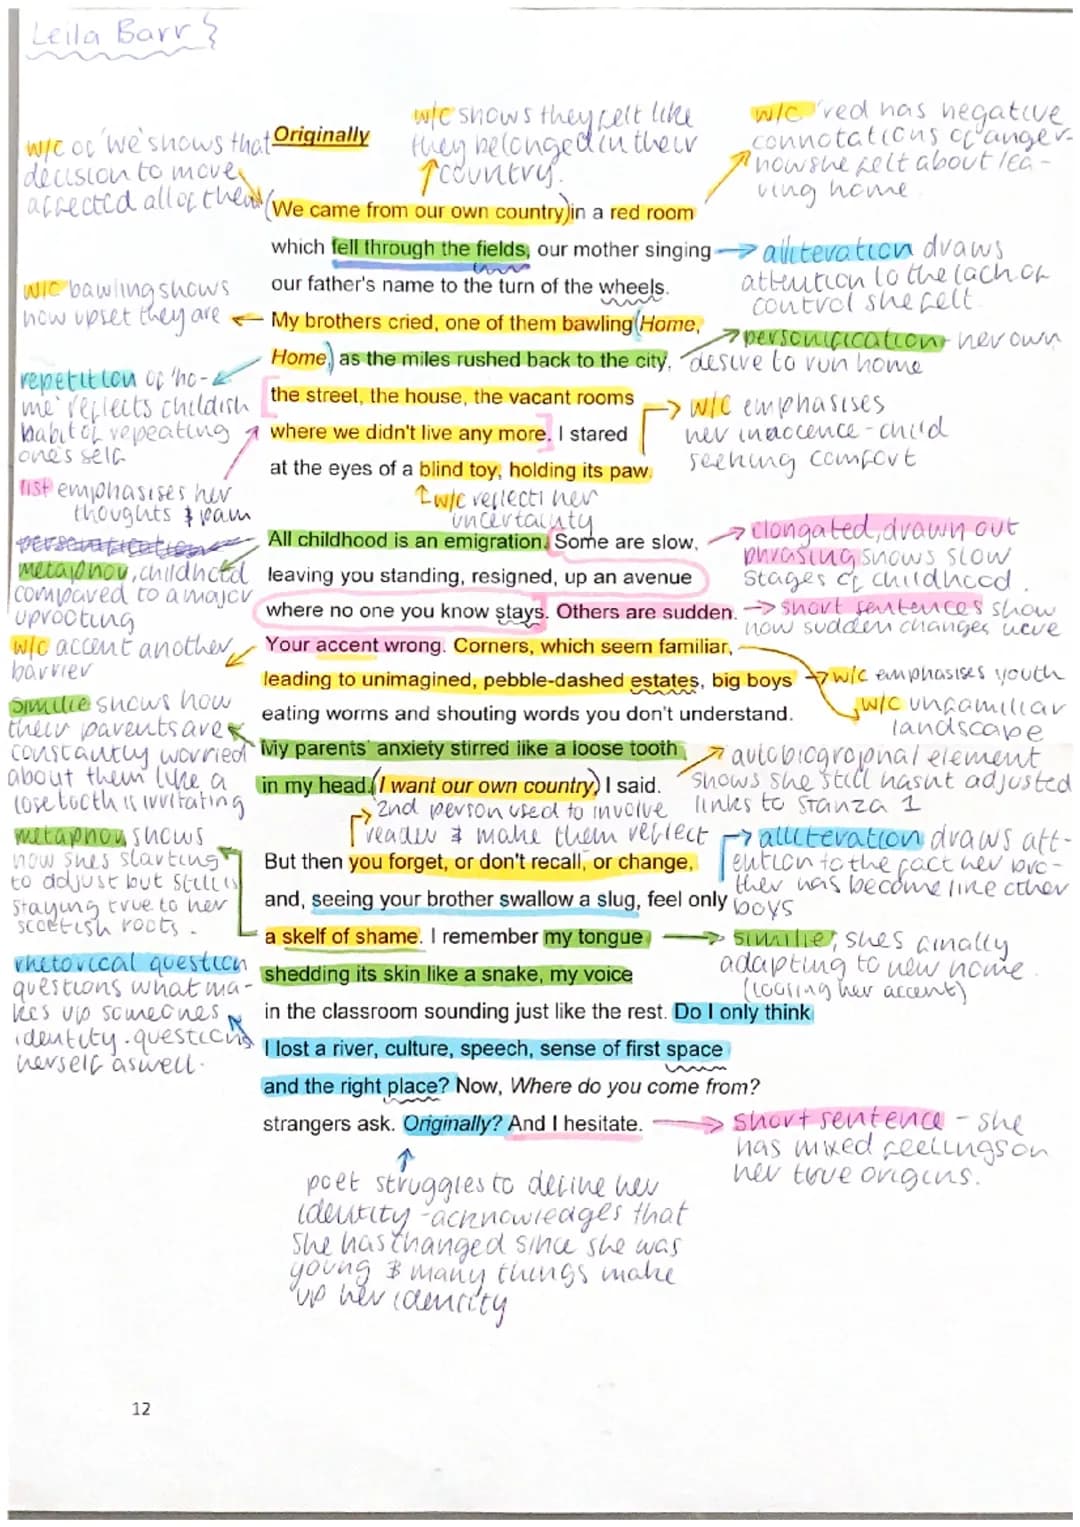 Leila Barr
w/c of 'we' shows that
decision to move
affected all of them
Originally
w/c shows they felt like
they belonged in their
country.
w/c 'red has negative
connotations of anger-
how she felt about lea-
ving home
We came from our own country in a red room
which fell through the fields, our mother singing
our father's name to the turn of the wheels.
My brothers cried, one of them bawling Home,
Home, as the miles rushed back to the city,
the street, the house, the vacant rooms
where we didn't live any more. I stared
at the eyes of a blind toy, holding its paw.
alliteration draws
attention to the lack of
control she felt.
w/c bawling shows
how upset they are
personification - her own
desire to run home
repetition of 'ho-
me' reflects childish
habit of repeating
one's self
w/c emphasises
her innocence - child
seeking comfort
list emphasises her
thoughts & pain
w/c reflecti her
uncertainty
All childhood is an emigration. Some are slow,
leaving you standing, resigned, up an avenue
where no one you know stays. Others are sudden.
Your accent wrong. Corners, which seem familiar,
leading to unimagined, pebble-dashed estates, big boys
eating worms and shouting words you don't understand.
My parents' anxiety stirred like a loose tooth
in my head. I want our own country, I said.
personification
metaphor, childhood
compared to a major
uprooting
elongated, drawn out
phrasing shows slow
stages of childhood.
short sentences show
how sudden changes were
w/c accent another
barrier
w/c emphasises youth
w/c unfamiliar
landscape
similie shows how
their parents are
constantly worried
about them like a
lose tooth is irritating
autobiographal element
shows she still hasnt adjusted
links to stanza 1
2nd person used to involve
reader & make them reflect
But then you forget, or don't recall, or change,
and, seeing your brother swallow a slug, feel only
a skelf of shame. I remember my tongue
shedding its skin like a snake, my voice
in the classroom sounding just like the rest. Do I only think
I lost a river, culture, speech, sense of first space
and the right place? Now, Where do you come from?
strangers ask. Originally? And I hesitate.
metaphor, shows
how shes starting
to adjust but still is
staying true to her
scottish roots.
alliteration draws att-
ention to the fact her bro-
ther has become like other
boys
similie, shes finally
adapting to new home.
(loosing her accent)
rhetorical question
questions what ma-
kes up someones
identity. questions
herself aswell.
short sentence - she
has mixed feelings on
her true origins.
poet struggles to define her
identity - acknowledges that
she has changed since she was
young & many things make
up her identity
12